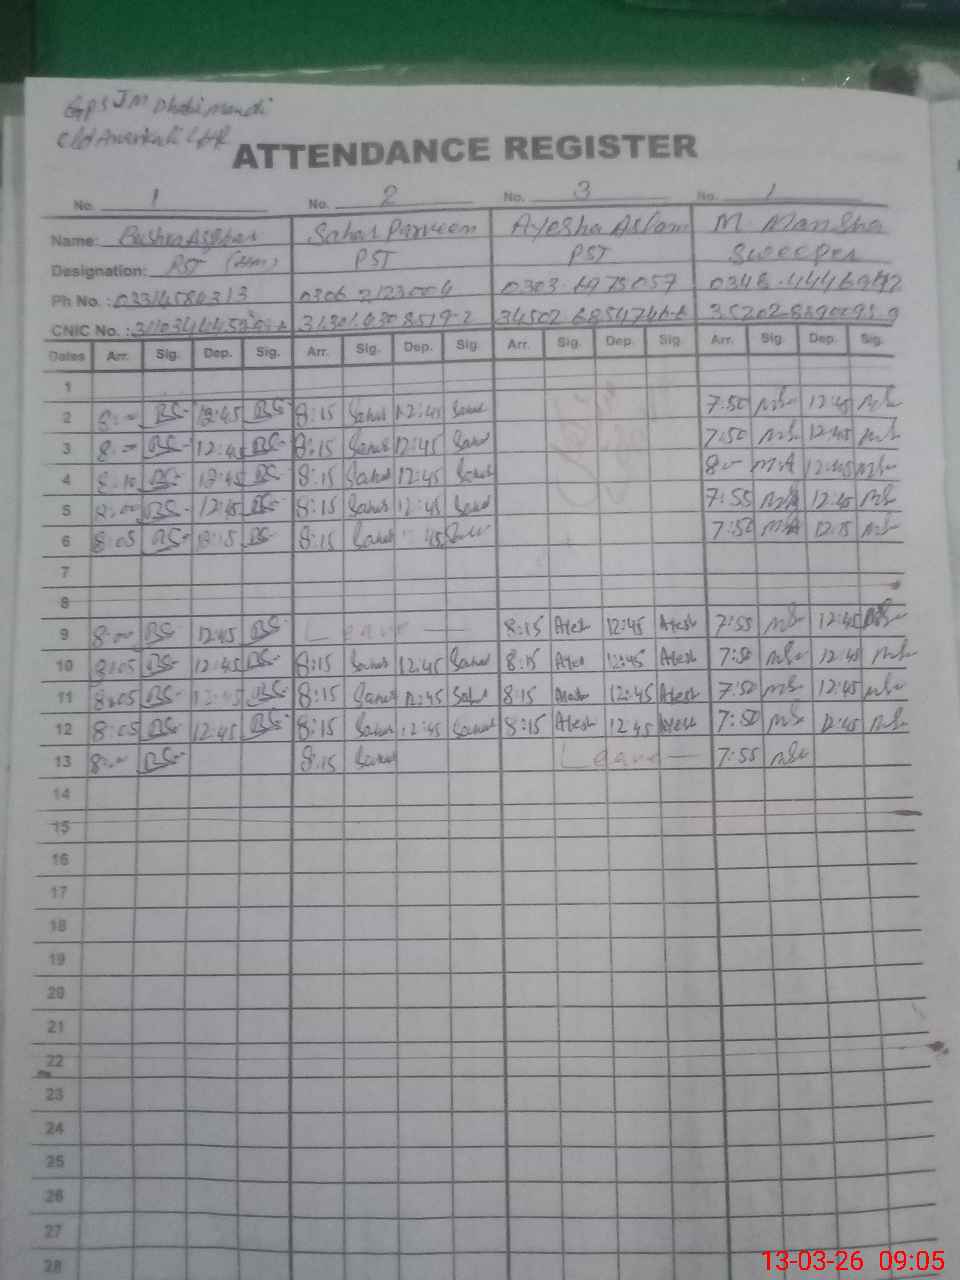 GPS JM Dhobi mandi
Old Anarkali LHR
ATTENDANCE REGISTER
No. 1 No. 2 No. 3 No. 1
Name: Bushra Asghar Sahar Parveen Ayesha Aslam M. Mansha
Designation: PST PST PST Sweeper
Ph No.: 03314580313 0306 2123004 0303.6975057
CNIC No.:
Dates Arr. Sig. Dep. Sig. Arr. Sig. Dep. Sig. Arr. Sig. Dep. Sig. Arr. Sig. Dep. Sig.
1
2 8:00 BS 12:45 BS 8:15 Sahar 12:45 Sahar 7:50 12:45
3 8:00 BS 12:45 BS 8:15 Sahar 12:45 Sahar 7:50 12:45
4 8:10 BS 12:45 BS 8:15 Sahar 12:45 Sahar 8:00 12:45
5 8:00 BS 12:45 BS 8:15 Sahar 12:45 Sahar 7:55 12:45
6 8:05 BS BS 8:15 Sahar 7:50 12:15
7
8
9 8:00 BS 12:45 BS Leave 8:15 Ayesh 12:45 Ayesh 7:55 12:45
10 8:05 BS 12:45 BS 8:15 Sahar 12:45 Sahar 8:15 12:45 Ayesh 7:50 12:45
11 8:05 BS 12:45 BS 8:15 Sahar 12:45 Sahar 8:15 Ayesh 12:45 Ayesh 7:50 12:45
12 8:05 BS 12:45 BS 8:15 Sahar 12:45 Sahar 8:15 Ayesh 12:45 Ayesh 7:50 12:45
13 8:00 BS 8:15 Sahar Leave 7:55
14
15
16
17
18
19
20
21
22
23
24
25
26
27
28
13-03-26 09:05